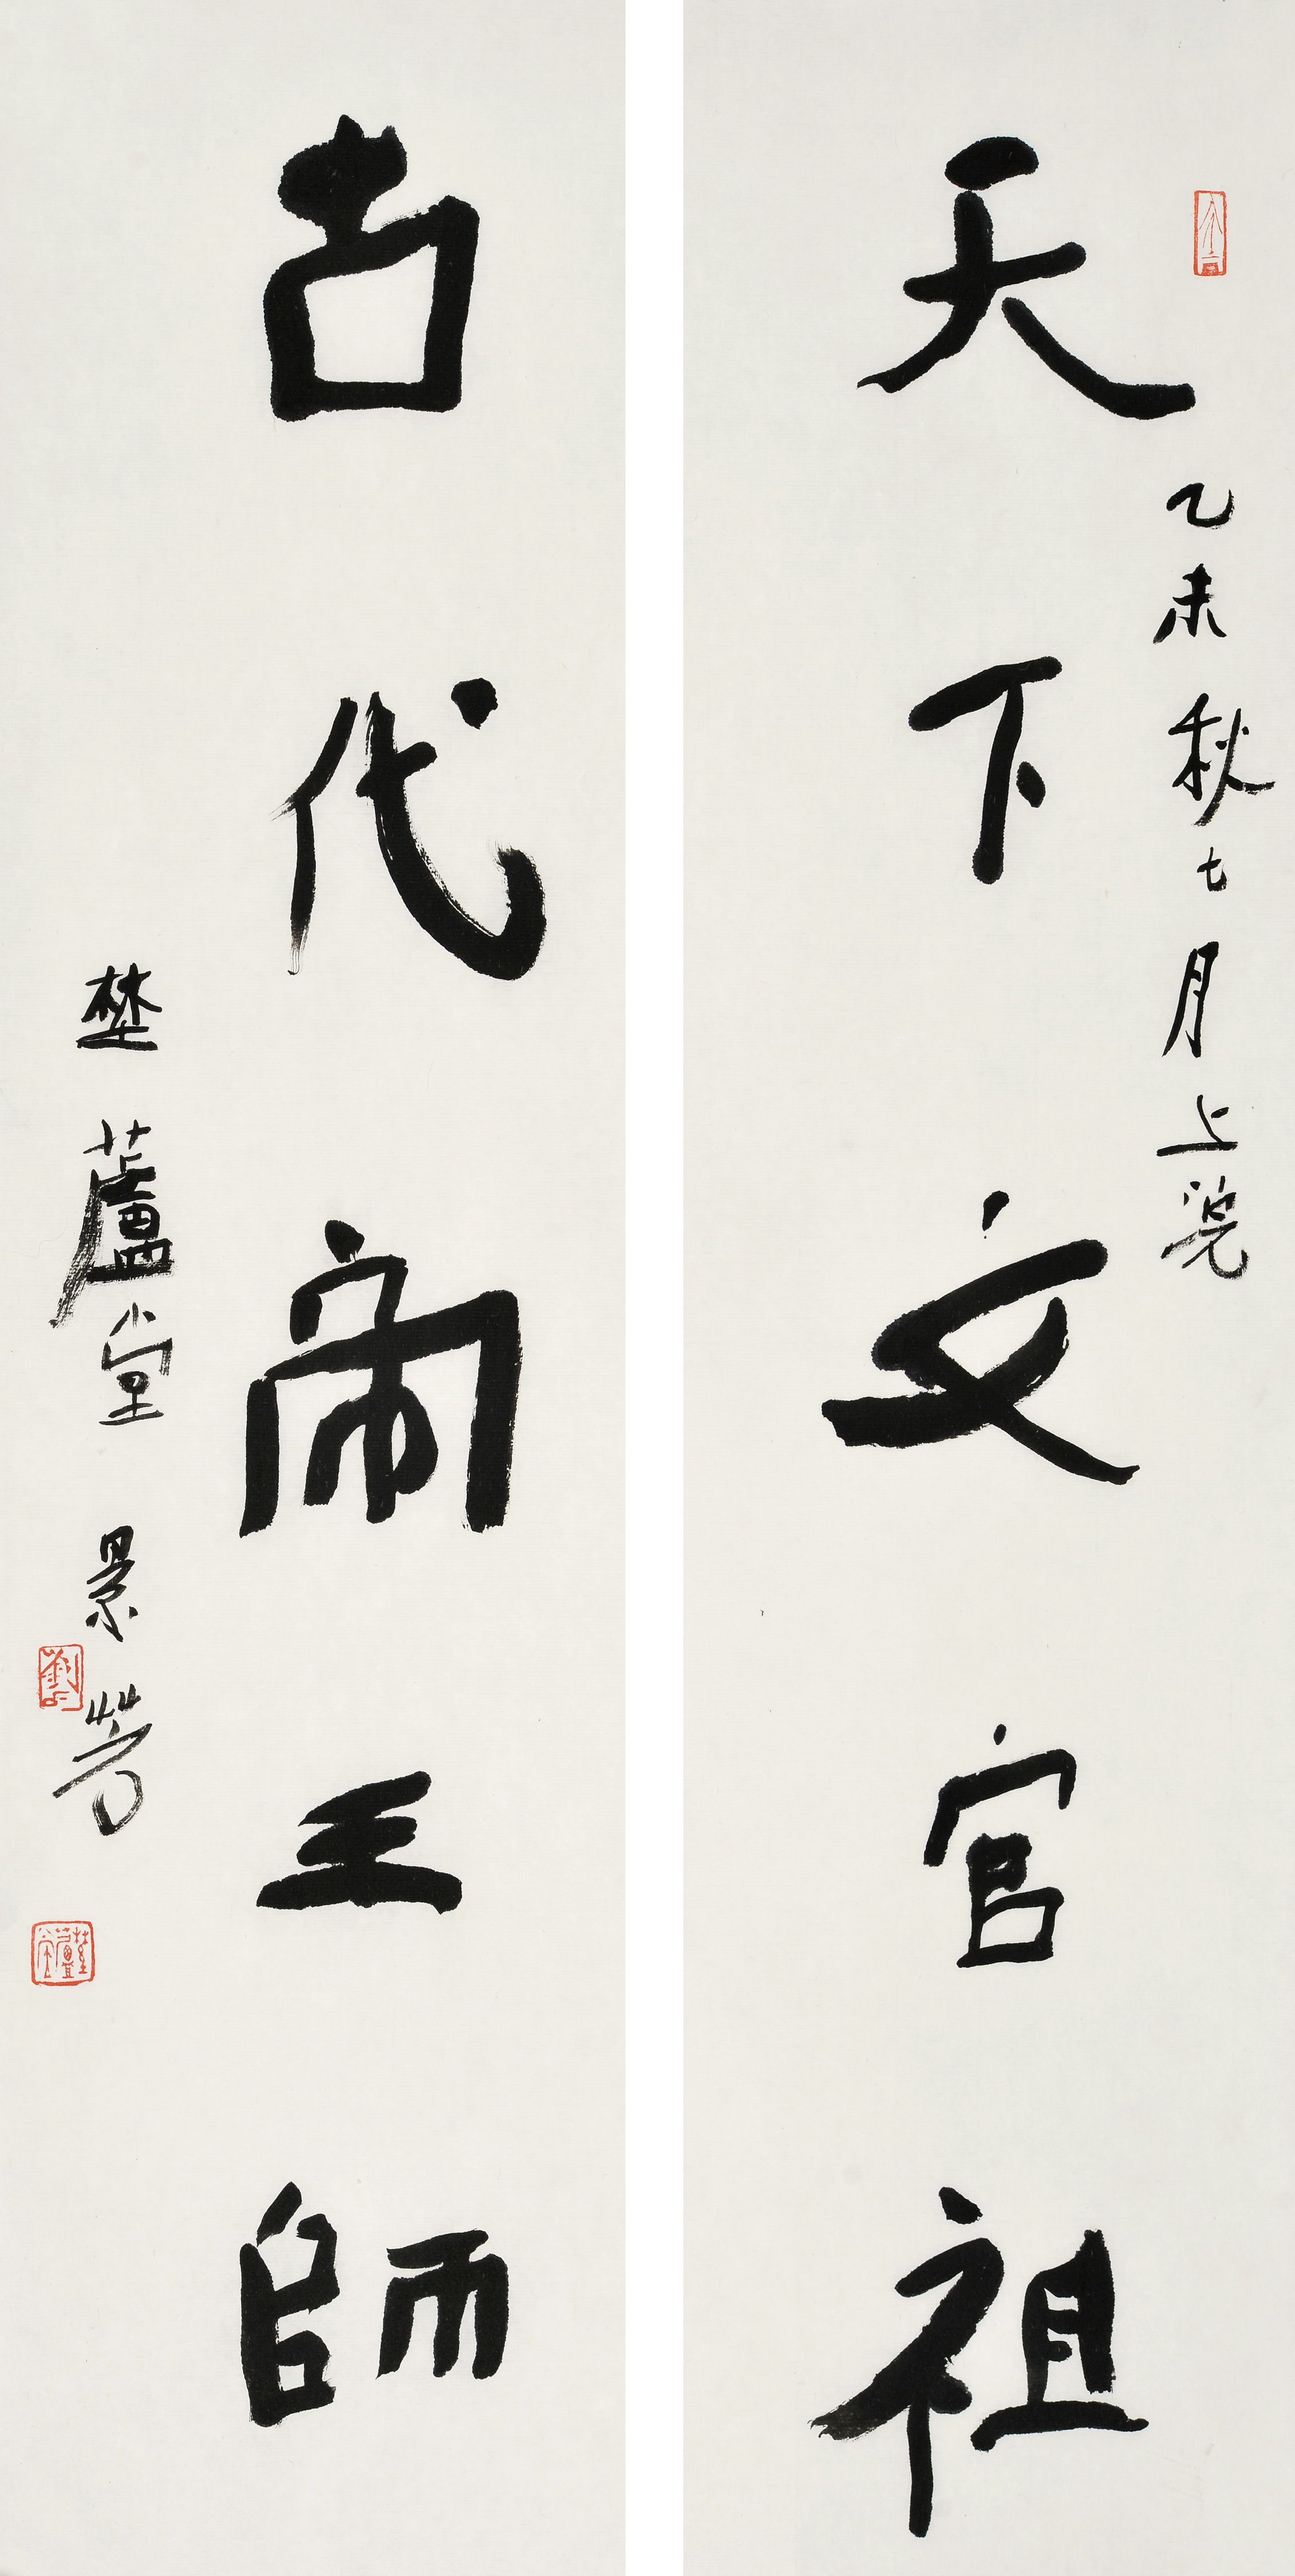 天下文官祖
乙未秋七月上浣
古代帝王師
楚蘆堂
景芳